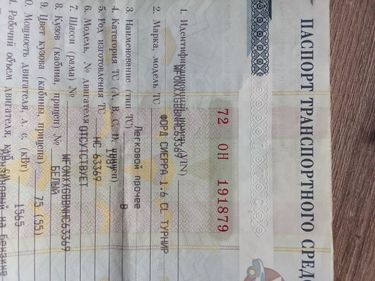 ПАСПОРТ ТРАНСПОРТНОГО СРЕДС
72 ОН 191879
1. Идентификационный номер (VIN)
2. Марка, модель ТС ФОРД СИЕРРА 1.6 CL ТУРНИР
3. Наименование (тип ТС) Легковой прочее
4. Категория ТС (А, В, С, D, прицеп) В
5. Год изготовления ТС
6. Модель, № двигателя НС 63369
7. Шасси (рама) № ОТСУТСТВУЕТ
8. Кузов (кабина, прицеп) №
9. Цвет кузова (кабины, прицепа) БЕЛЫЙ
Мощность двигателя, л. с. (кВт) 75 (55)
Рабочий объем двигателя, куб. 1565
на бензине